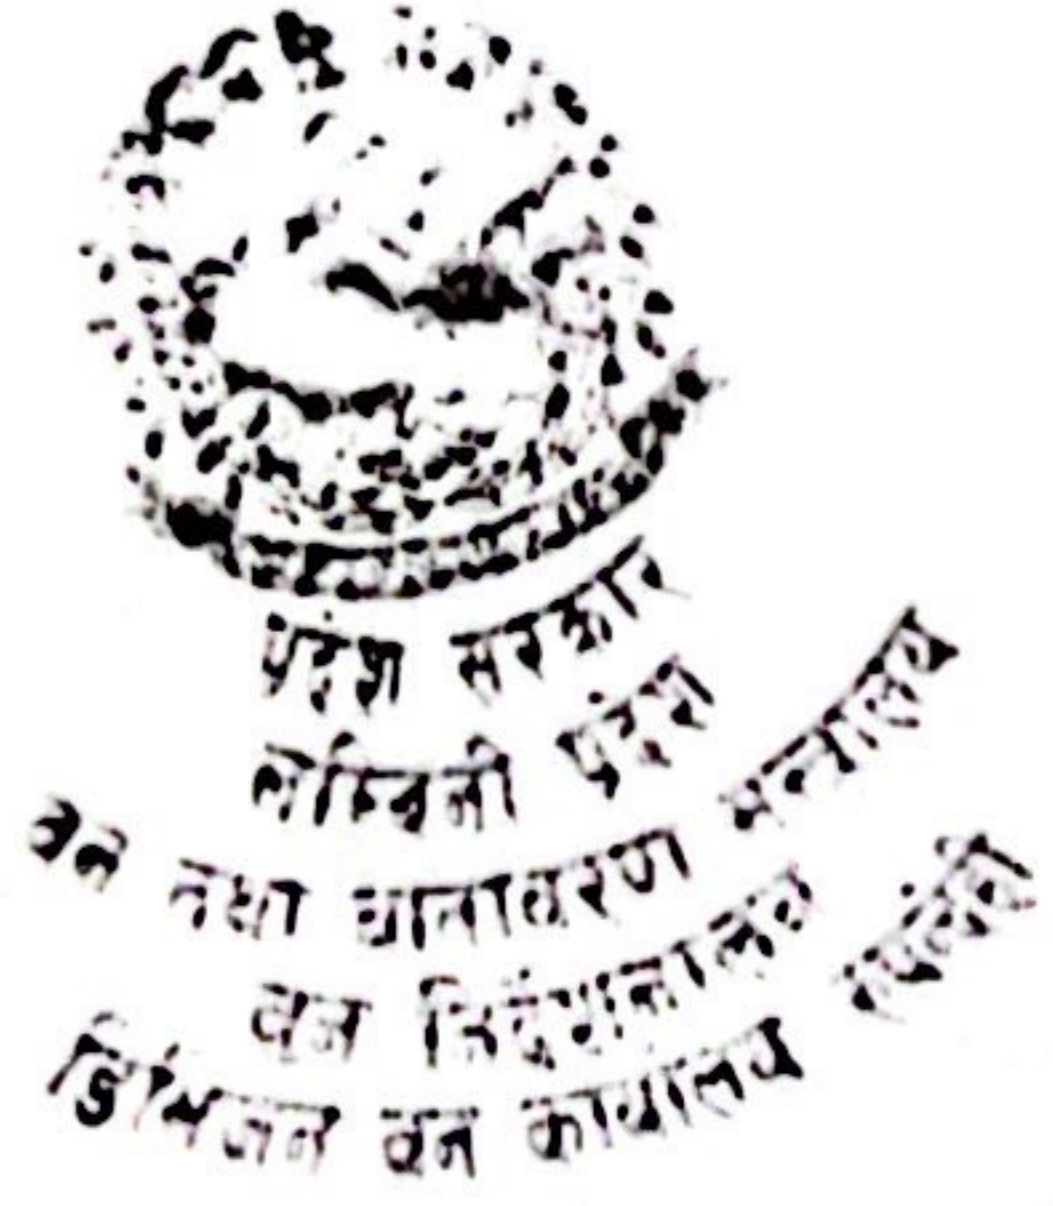 प्रदेश सरकार
लुम्बिनी प्रदेश
वन तथा वातावरण मन्त्रालय
वन निर्देशनालय
डिभिजन वन कार्यालय रुपन्देही